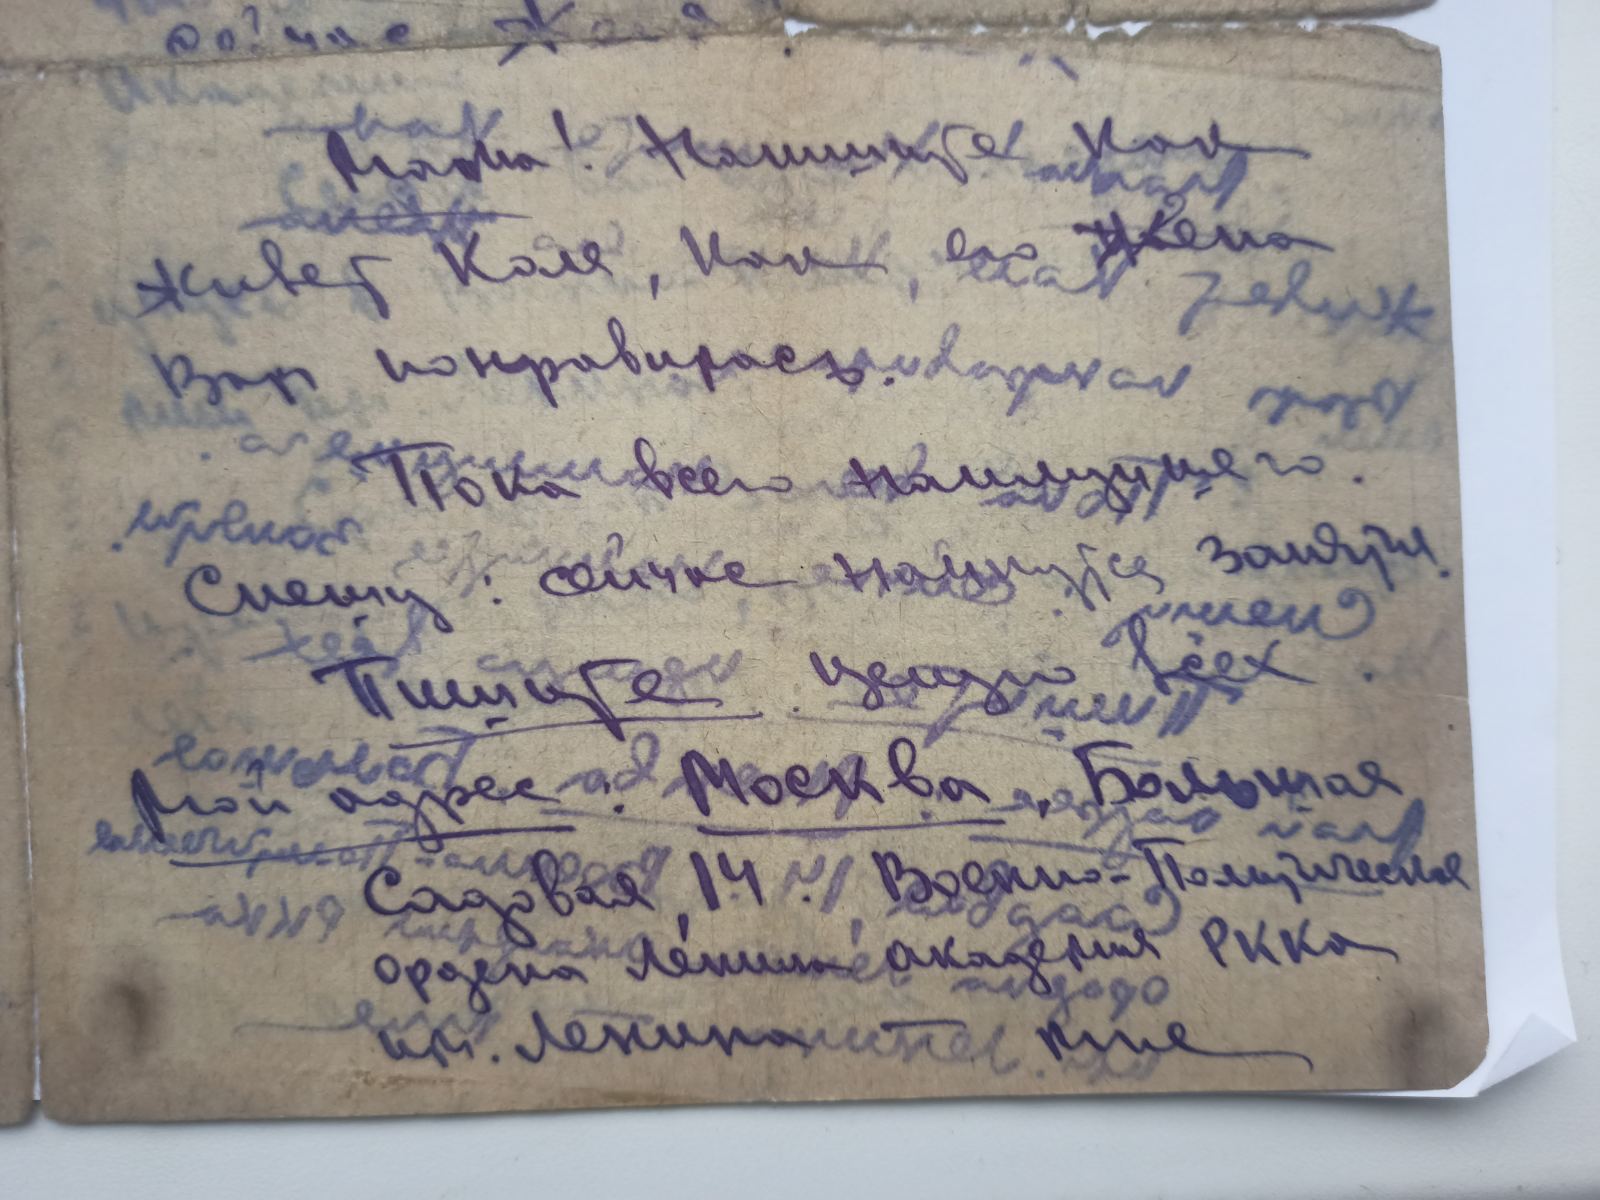 Мама! Напишите как
живет Коля, как, его жена
Вам понравилась.
Пока всего наилучшего.
Спешу: сейчас начнутся занятия.
Пишите целую всех
Мой адрес: Москва, Большая
Садовая, 14, Военно-Политическая
ордена Ленина академия РККА
им. Ленина мне